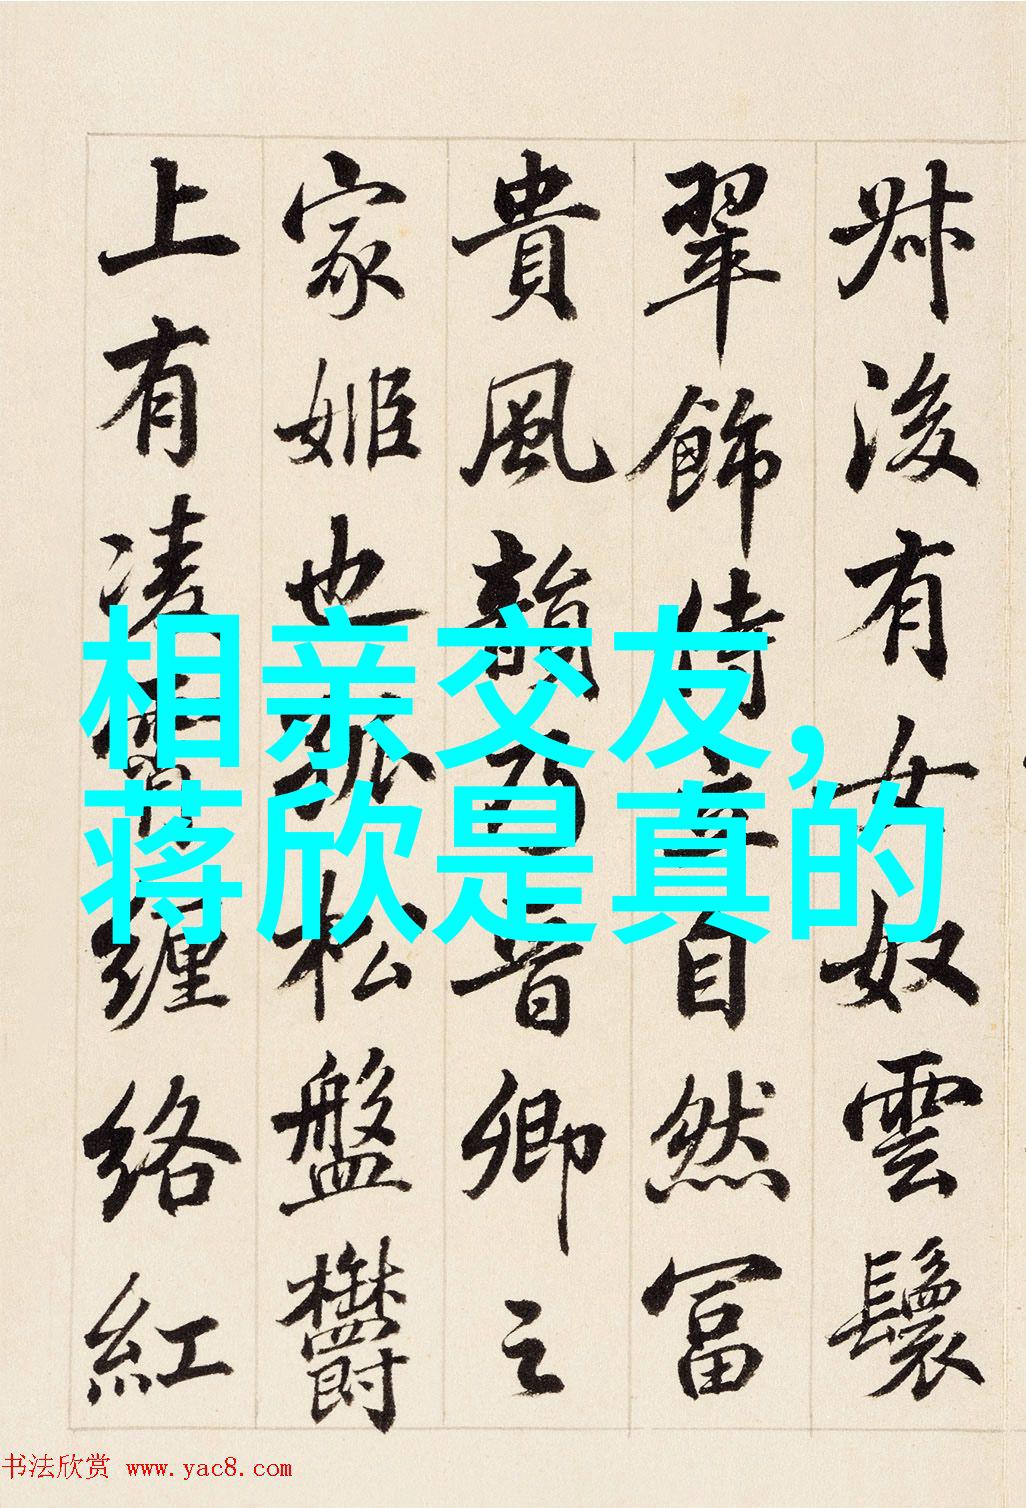 叔後有女奴雲鬟
翠飾侍立自然富
貴風韻乃晉卿之
家姬也孤松盤鬱
上有凌霄纏絡紅
相亲交友,
蒋欣是真的
书法欣赏 www.yac8.com